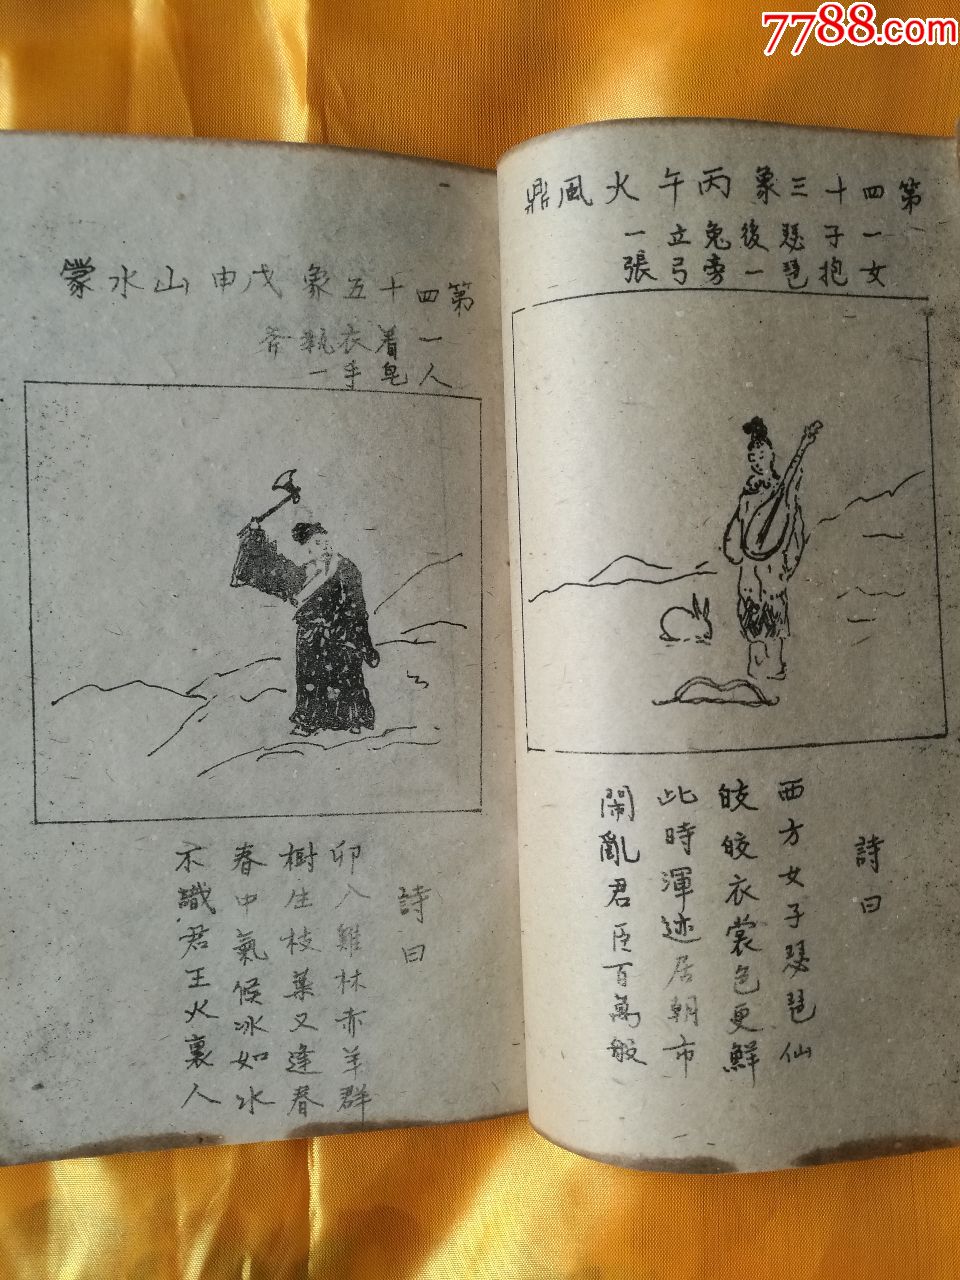 7788.com
第四十三象丙午火風鼎
一女子抱瑟琶後一兔旁立弓一張
詩曰
西方女子瑟琶仙
皎皎衣裳色更鮮
此時渾迹居朝市
鬧亂君臣百萬般
第四十五象戊申山水蒙
一人着皂衣手執一斧
詩曰
卯入雞林赤羊群
樹生枝葉又逢春
春中氣候冰如水
不識君王火裏人